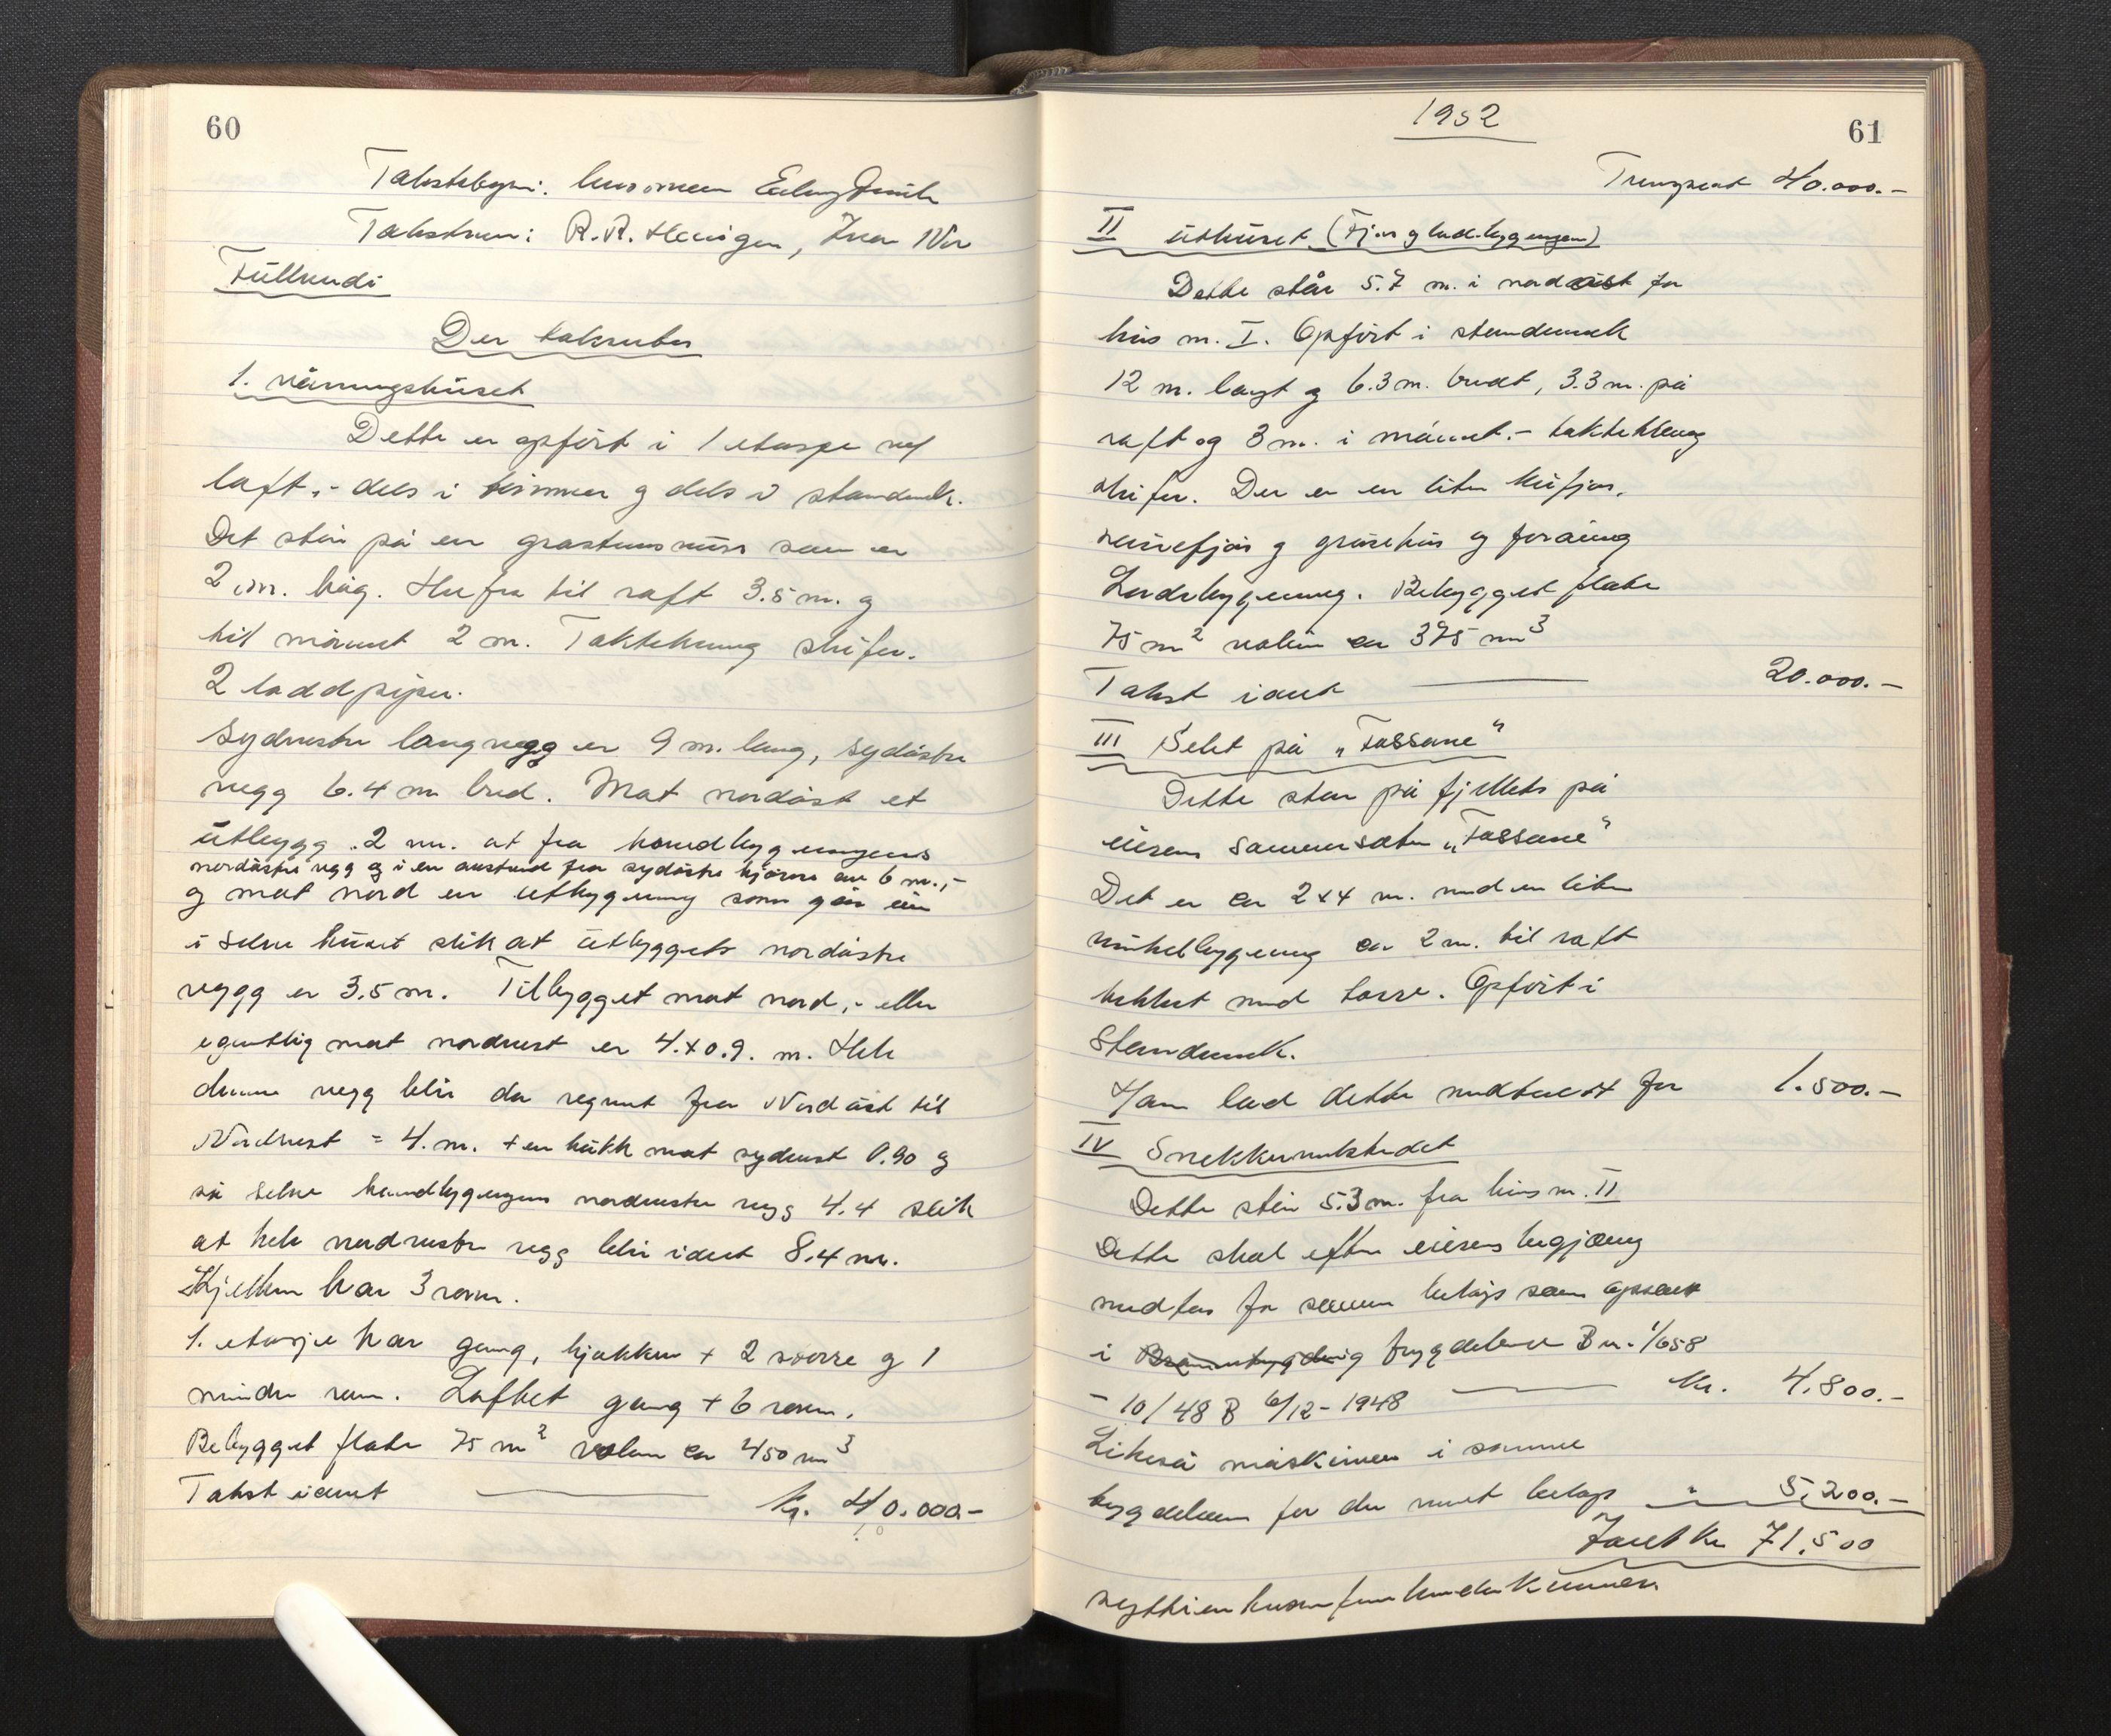 60
Takstbegni: husmann
Takstmen: R. R.
Füllnudi
Der takseres
1. våningshuset
Dette er opført i 1 etasje m/
loft, - dels i timmer og dels i standverk.
Det står på en grastensmur som er
2 m. høg. Herfra til raft 3.5 m. og
til mønet 2 m. Taktekning skifer.
2 loddpiper.
Sydvestre langvegg er 9 m. lang, sydøstre
vegg 6.4 m bred. Mot nordøst et
utbygg 2 m. ut fra hovedbygningens
nordøstre vegg og i en avstand fra sydøstre hjørne av 6 m., -
og mot nord en utbygning som går inn
i selve huset slik at utbyggets nordøstre
vegg er 3.5 m. Tilbygget mot nord, - eller
egentlig mot nordvest er 4. x 0.9. m. Hele
denne vegg blir da regnet fra Nordøst til
Nordvest = 4. m. + en knekk mot sydvest 0.90 og
så selve hovedbygningens nordvestre vegg 4.4 slik
at hele nordvestre vegg blir ialt 8.4 m.
Kjelleren har 3 rom.
1. etasje har gang, kjøkken + 2 større og 1
mindre rom. Loftet gang + 6 rom.
Bebygget flate 75 m² volum ca 450 m³
Takst iallt kr. 40.000.-
1952
61
Transport 40.000.-
II uthuset (Fjøs og ladebygningen)
Dette står 5.7 m. i nordøst for
hus nr. I. Opført i standverk
12 m. langt og 6.3 m. bredt, 3.3 m. på
raft og 3 m. i mønet. - taktekking
skifer. Der er en liten kufjøs,
sauefjøs og grisehus og foråvrig
Ladebygning. Bebygget flate
75 m² volum ca 375 m³
Takst iallt 20.000.-
III Selet på „Fossane"
Dette står på fjellets på
eierens sommersæter „Fossane"
Det er ca 2 x 4 m. med en liten
vinkelbygning ca 2 m. til raft
tekket med torv. Opført i
Standverk.
Han lod dette medtakst for 1.500.-
IV Snekkerverkstedet
Dette står 5.3 m. fra hus nr. II
Dette skal efter eierens begjæring
medtas for samme beløp som opsatt
i bygdeloven B nr. 1/658
- 10/48 B 6/12 - 1948 kr. 4.800.-
Likeså maskiner i samme
for det beløp " 5,200.-
Iallt kr 71.500
syttientusenfemhundrekroner.